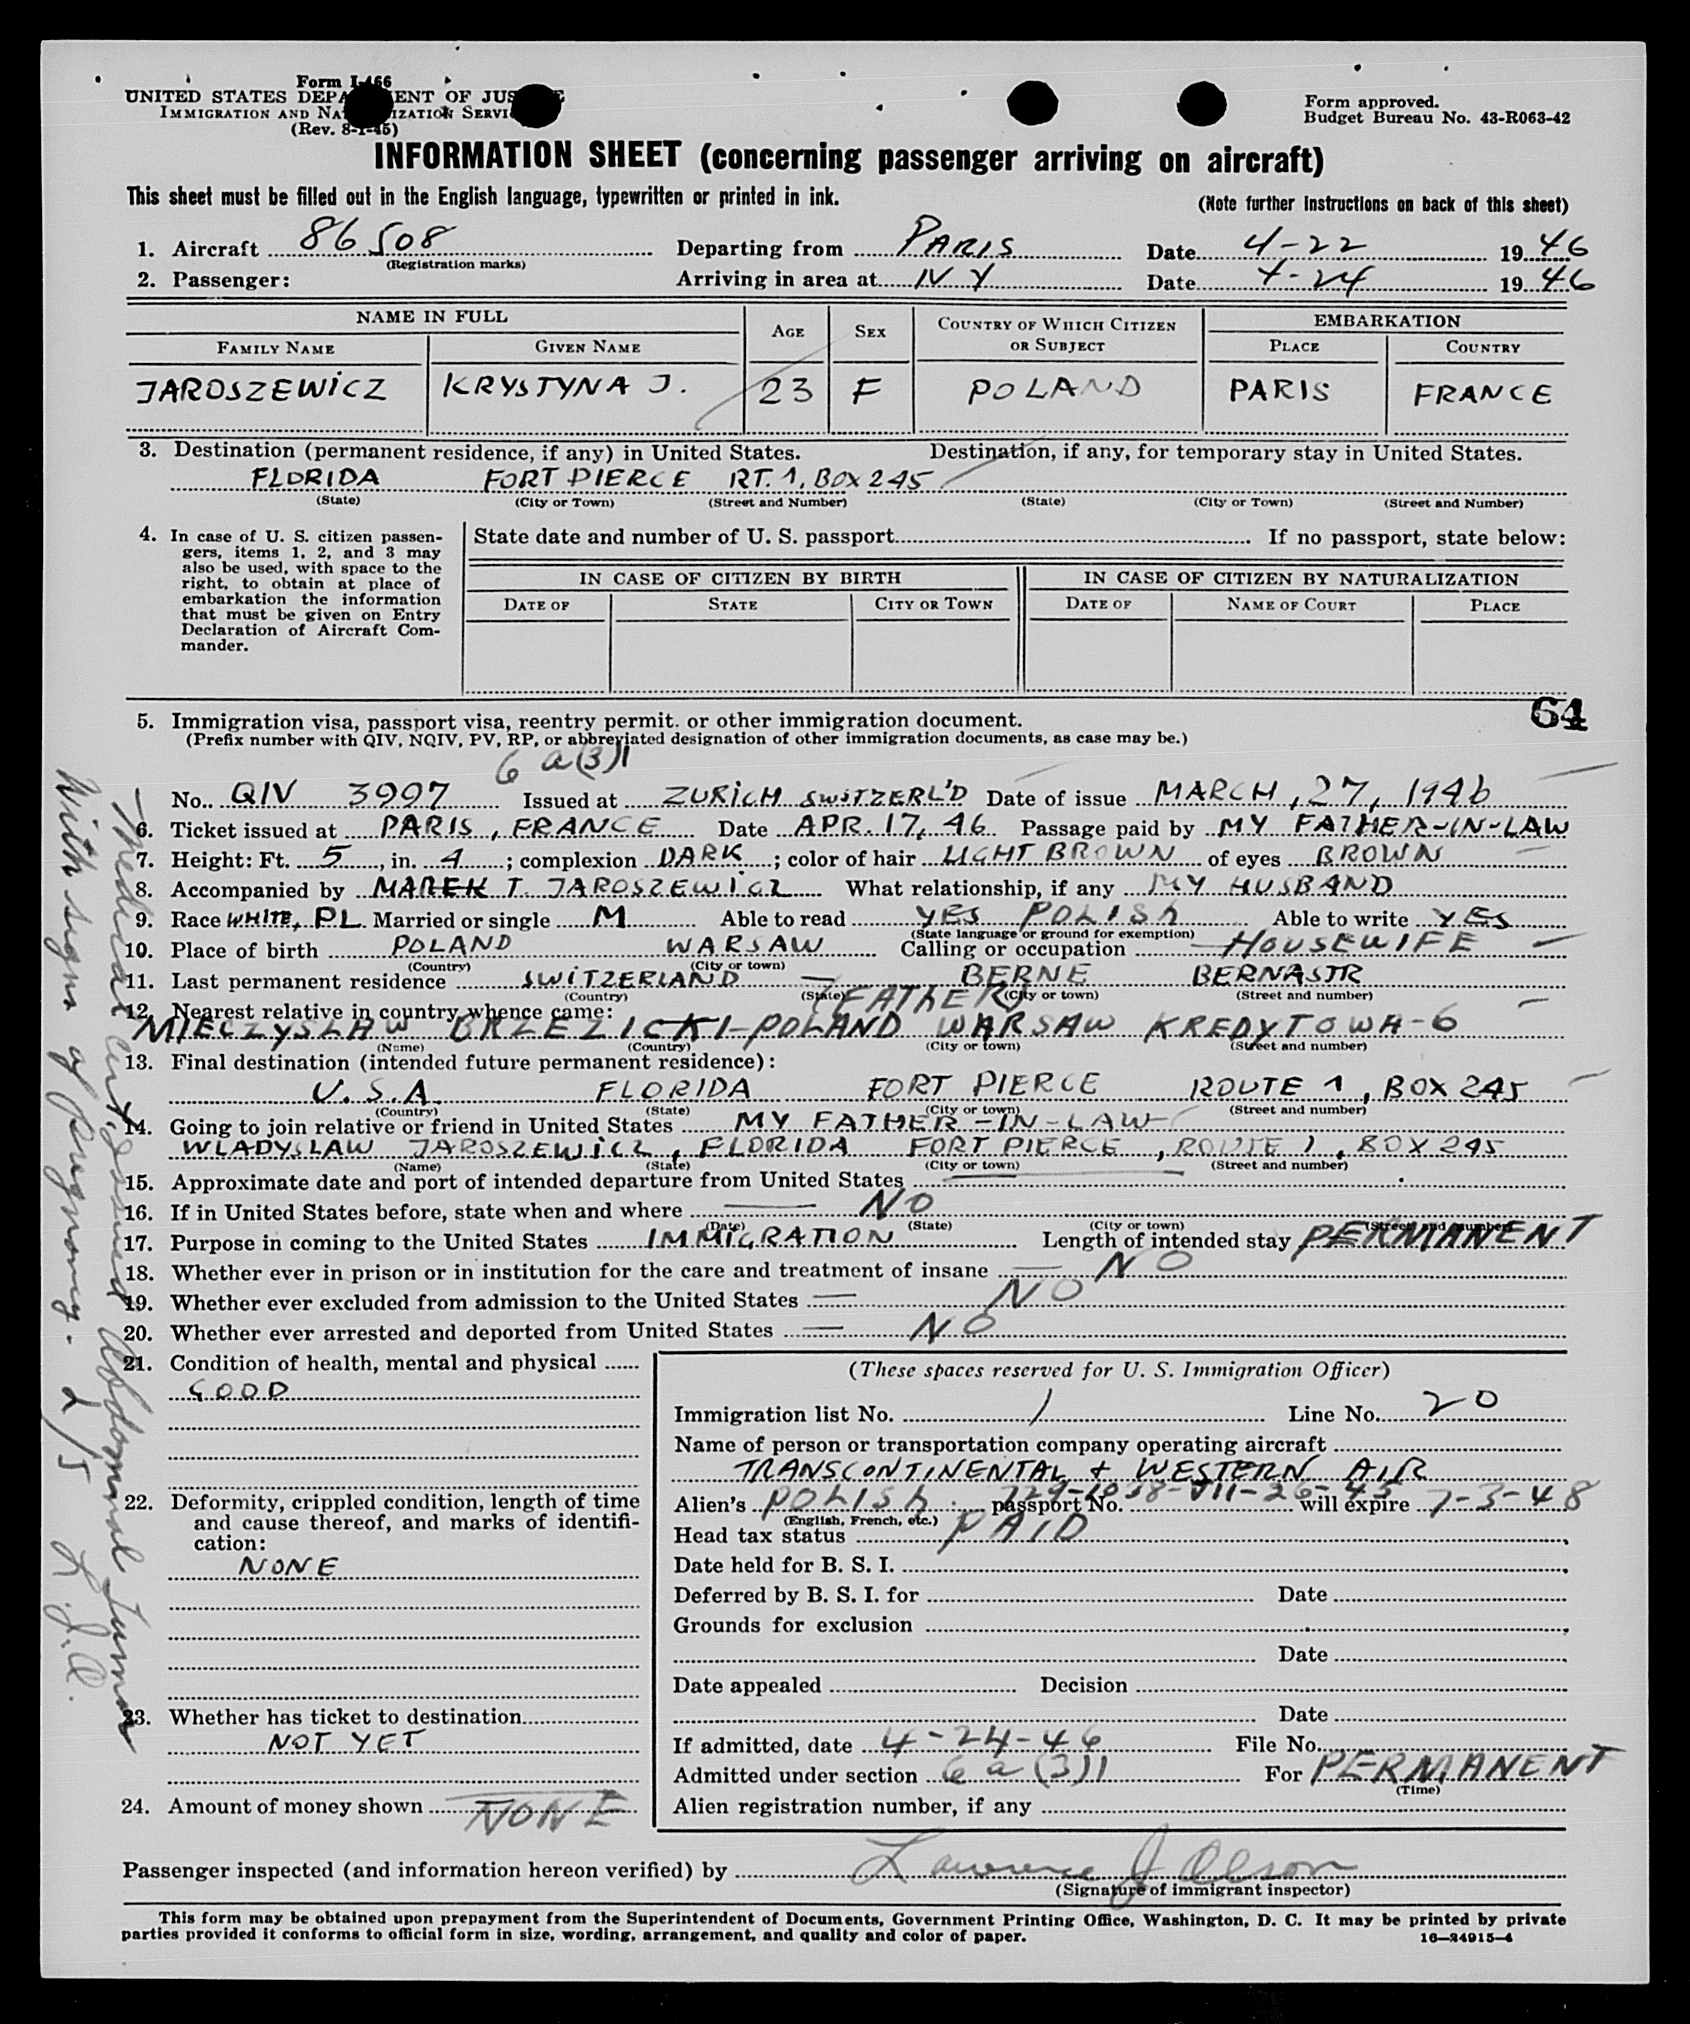 Form I-466
UNITED STATES DEPARTMENT OF JUSTICE
IMMIGRATION AND NATURALIZATION SERVICE
(Rev. 8-1-45)
Form approved.
Budget Bureau No. 43-R063-42
INFORMATION SHEET (concerning passenger arriving on aircraft)
This sheet must be filled out in the English language, typewritten or printed in ink.
(Note further instructions on back of this sheet)
1. Aircraft 86508 Departing from PARIS Date 4-22 1946
(Registration marks)
2. Passenger: Arriving in area at NY Date 4-24 1946
NAME IN FULL AGE SEX COUNTRY OF WHICH CITIZEN OR SUBJECT EMBARKATION
FAMILY NAME GIVEN NAME PLACE COUNTRY
JAROSZEWICZ KRYSTYNA J. 23 F POLAND PARIS FRANCE
3. Destination (permanent residence, if any) in United States. Destination, if any, for temporary stay in United States.
FLORIDA FORT PIERCE RT. 1, BOX 245
(State) (City or Town) (Street and Number) (State) (City or Town) (Street and Number)
4. In case of U. S. citizen passen-
gers, items 1, 2, and 3 may
also be used, with space to the
right, to obtain at place of
embarkation the information
that must be given on Entry
Declaration of Aircraft Com-
mander.
State date and number of U. S. passport If no passport, state below:
IN CASE OF CITIZEN BY BIRTH IN CASE OF CITIZEN BY NATURALIZATION
DATE OF STATE CITY OR TOWN DATE OF NAME OF COURT PLACE
64
5. Immigration visa, passport visa, reentry permit. or other immigration document.
(Prefix number with QIV, NQIV, PV, RP, or abbreviated designation of other immigration documents, as case may be.)
6 a(3)1
No. QIV 3997 Issued at ZURICH SWITZERL'D Date of issue MARCH, 27, 1946
6. Ticket issued at PARIS, FRANCE Date APR. 17, 46 Passage paid by MY FATHER-IN-LAW
7. Height: Ft. 5, in. 4; complexion DARK; color of hair LIGHT BROWN of eyes BROWN
8. Accompanied by MAREK T. JAROSZEWICZ What relationship, if any MY HUSBAND
9. Race WHITE, PL. Married or single M Able to read YES POLISH Able to write YES
(State language or ground for exemption)
10. Place of birth POLAND WARSAW Calling or occupation HOUSEWIFE
(Country) (City or town)
11. Last permanent residence SWITZERLAND — BERNE BERNASTR
(Country) (State) (City or town) (Street and number)
12. Nearest relative in country whence came: (FATHER)
MIECZYSLAW BRZEZICKI-POLAND WARSAW KREDYTOWA-6
(Name) (Country) (City or town) (Street and number)
13. Final destination (intended future permanent residence):
U.S.A. FLORIDA FORT PIERCE ROUTE 1, BOX 245
(Country) (State) (City or town) (Street and number)
14. Going to join relative or friend in United States MY FATHER-IN-LAW
WLADYSLAW JAROSZEWICZ, FLORIDA FORT PIERCE, ROUTE 1, BOX 245
(Name) (State) (City or town) (Street and number)
15. Approximate date and port of intended departure from United States —
16. If in United States before, state when and where — NO
(Date) (State) (City or town) (Street and number)
17. Purpose in coming to the United States IMMIGRATION Length of intended stay PERMANENT
18. Whether ever in prison or in institution for the care and treatment of insane — NO
19. Whether ever excluded from admission to the United States — NO
20. Whether ever arrested and deported from United States — NO
21. Condition of health, mental and physical
GOOD
22. Deformity, crippled condition, length of time
and cause thereof, and marks of identifi-
cation:
NONE
23. Whether has ticket to destination
NOT YET
24. Amount of money shown NONE
(These spaces reserved for U. S. Immigration Officer)
Immigration list No. 1 Line No. 20
Name of person or transportation company operating aircraft
TRANSCONTINENTAL & WESTERN AIR
Alien's POLISH passport No. 729-1058-VII-26-45 will expire 7-3-48
(English, French, etc.)
Head tax status PAID
Date held for B. S. I.
Deferred by B. S. I. for Date
Grounds for exclusion
Date
Date appealed Decision
Date
If admitted, date 4-24-46 File No.
Admitted under section 6 a (3)1 For PERMANENT
(Time)
Alien registration number, if any
Passenger inspected (and information hereon verified) by Lawrence J Olson
(Signature of immigrant inspector)
This form may be obtained upon prepayment from the Superintendent of Documents, Government Printing Office, Washington, D. C. It may be printed by private
parties provided it conforms to official form in size, wording, arrangement, and quality and color of paper.
16—24915-4
Medical cert. issued Abdominal Tumor
With signs of Pregnancy. 2/5 L.J.O.